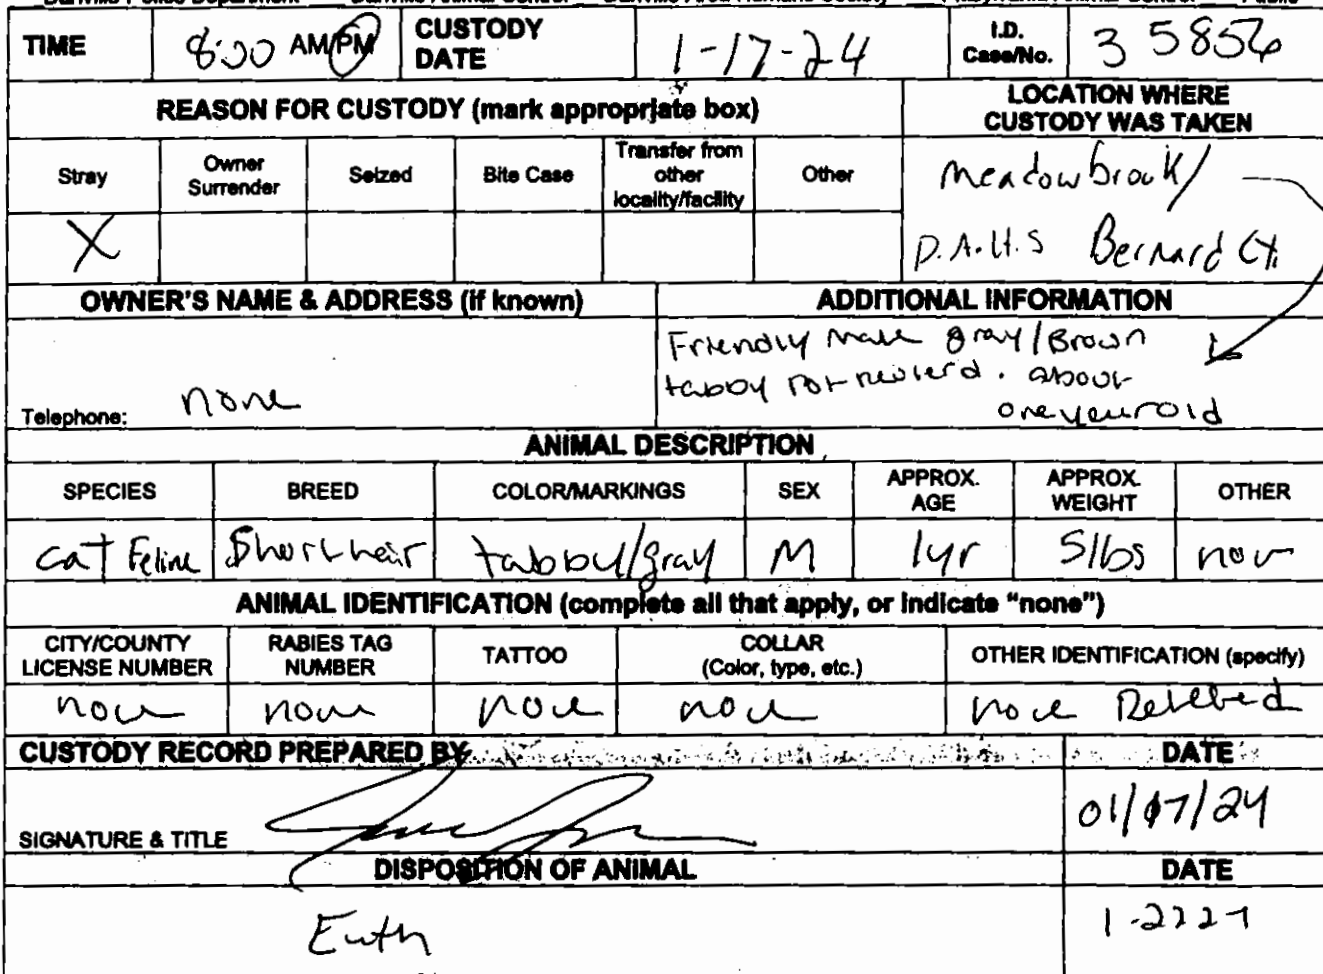 TIME 8:00 AM/PM CUSTODY DATE 1-17-24 I.D. Case/No. 35856
REASON FOR CUSTODY (mark appropriate box) LOCATION WHERE CUSTODY WAS TAKEN
Stray Owner Surrender Seized Bite Case Transfer from other locality/facility Other Meadowbrook/
X D.A.H.S Bernard Ct.
OWNER'S NAME & ADDRESS (if known) ADDITIONAL INFORMATION
Friendly male gray/Brown
tabby not neuterd. about
one year old
Telephone: none
ANIMAL DESCRIPTION
SPECIES BREED COLOR/MARKINGS SEX APPROX. AGE APPROX. WEIGHT OTHER
cat Feline Shorthair tabby/gray M 1yr 5lbs non
ANIMAL IDENTIFICATION (complete all that apply, or indicate "none")
CITY/COUNTY LICENSE NUMBER RABIES TAG NUMBER TATTOO COLLAR (Color, type, etc.) OTHER IDENTIFICATION (specify)
none none none none none
CUSTODY RECORD PREPARED BY DATE
SIGNATURE & TITLE 01/17/24
DISPOSITION OF ANIMAL DATE
Euth